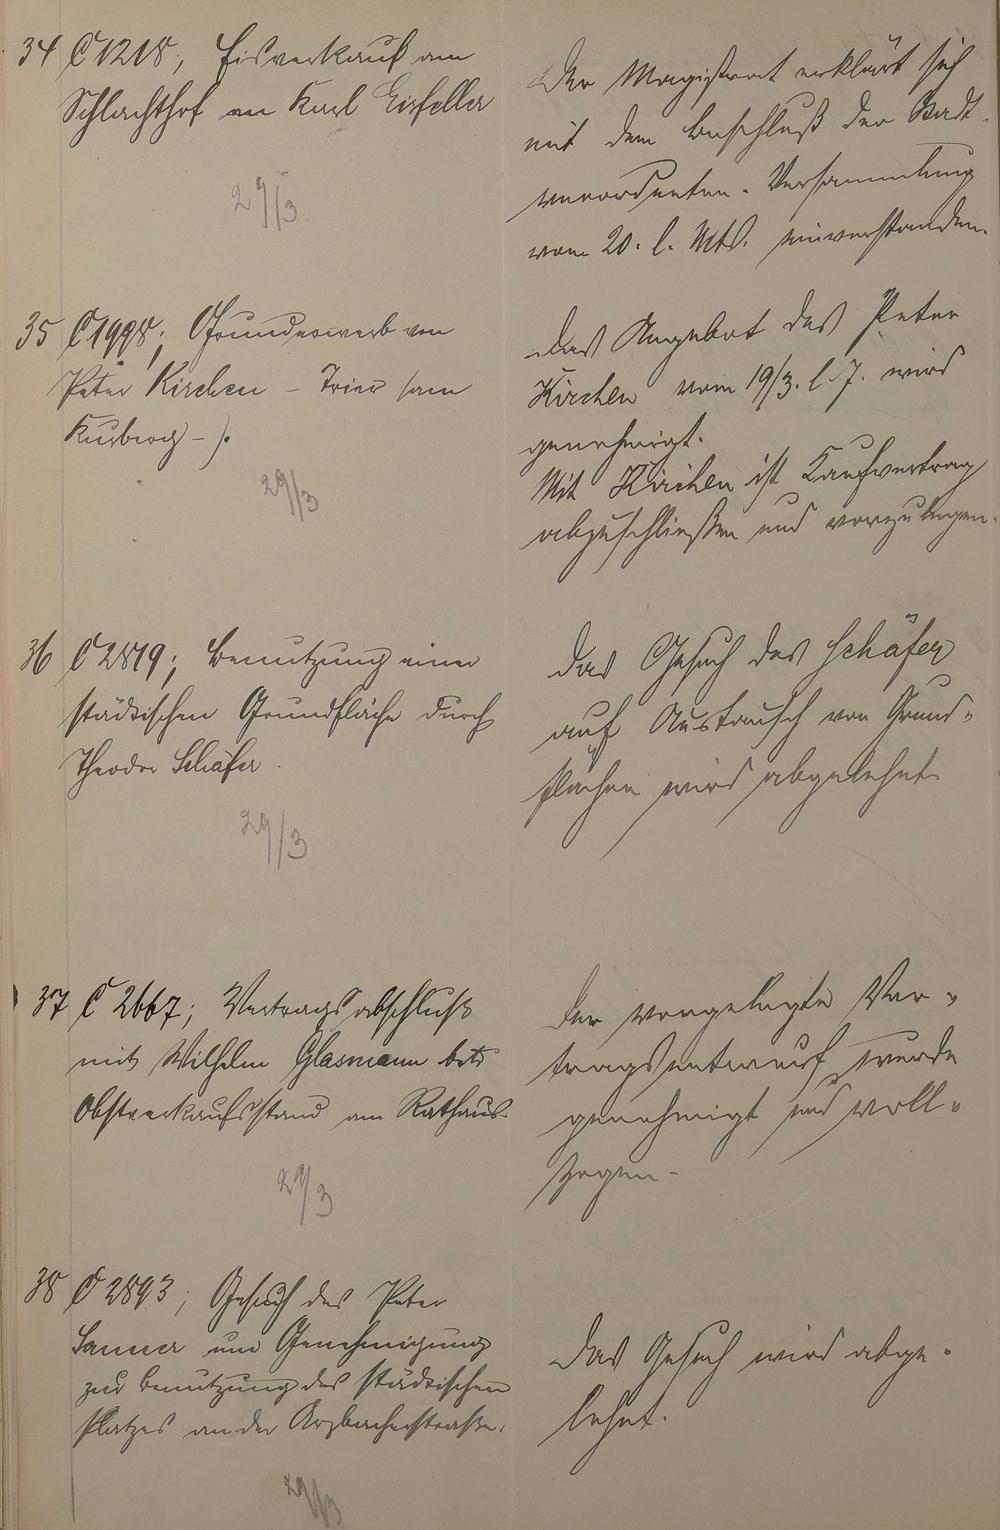 34 C 1218; Eisverkauf am
Schlachthof an Karl Eisfeller
29/3.
Der Magistrat erklärt sich
mit dem Beschluß der Stadt-
verordneten-Versammlung
vom 20. l. Mts. einverstanden.
35 C 1998; Grunderwerb von
Peter Kirchen - Trier (am
-).
29/3
Das Angebot des Peter
Kirchen vom 19/3. l. J. wird
genehmigt.
Mit Kirchen ist Kaufvertrag
abzuschließen und vorzulegen.
36 C 2819; Benutzung einer
städtischen Grundfläche durch
Theodor Schäfer
29/3
Das Gesuch des Schäfer
auf Austausch von Grund-
flächen wird abgelehnt.
37 C 2667; Vertragsabschluß
mit Wilhelm Glasmann betr.
Obstverkaufsstand am Rathaus.
29/3
Der vorgelegte Ver-
tragsentwurf wurde
genehmigt und voll-
zogen.
38 C 2893; Gesuch des Peter
Sanner um Genehmigung
zur Benutzung des städtischen
Platzes an der Arzbacherstraße.
29/3
Das Gesuch wird abge-
lehnt.